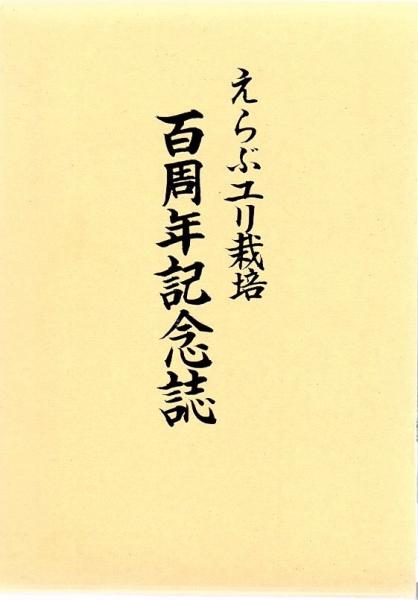 えらぶユリ栽培
百周年記念誌